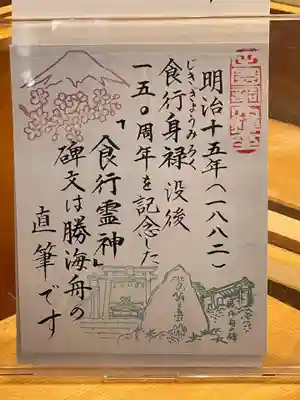 明治十五年（一八八二）
じきぎょうみろく
食行身禄没後
一五〇周年を記念した
「食行霊神」
碑文は勝海舟の
直筆です